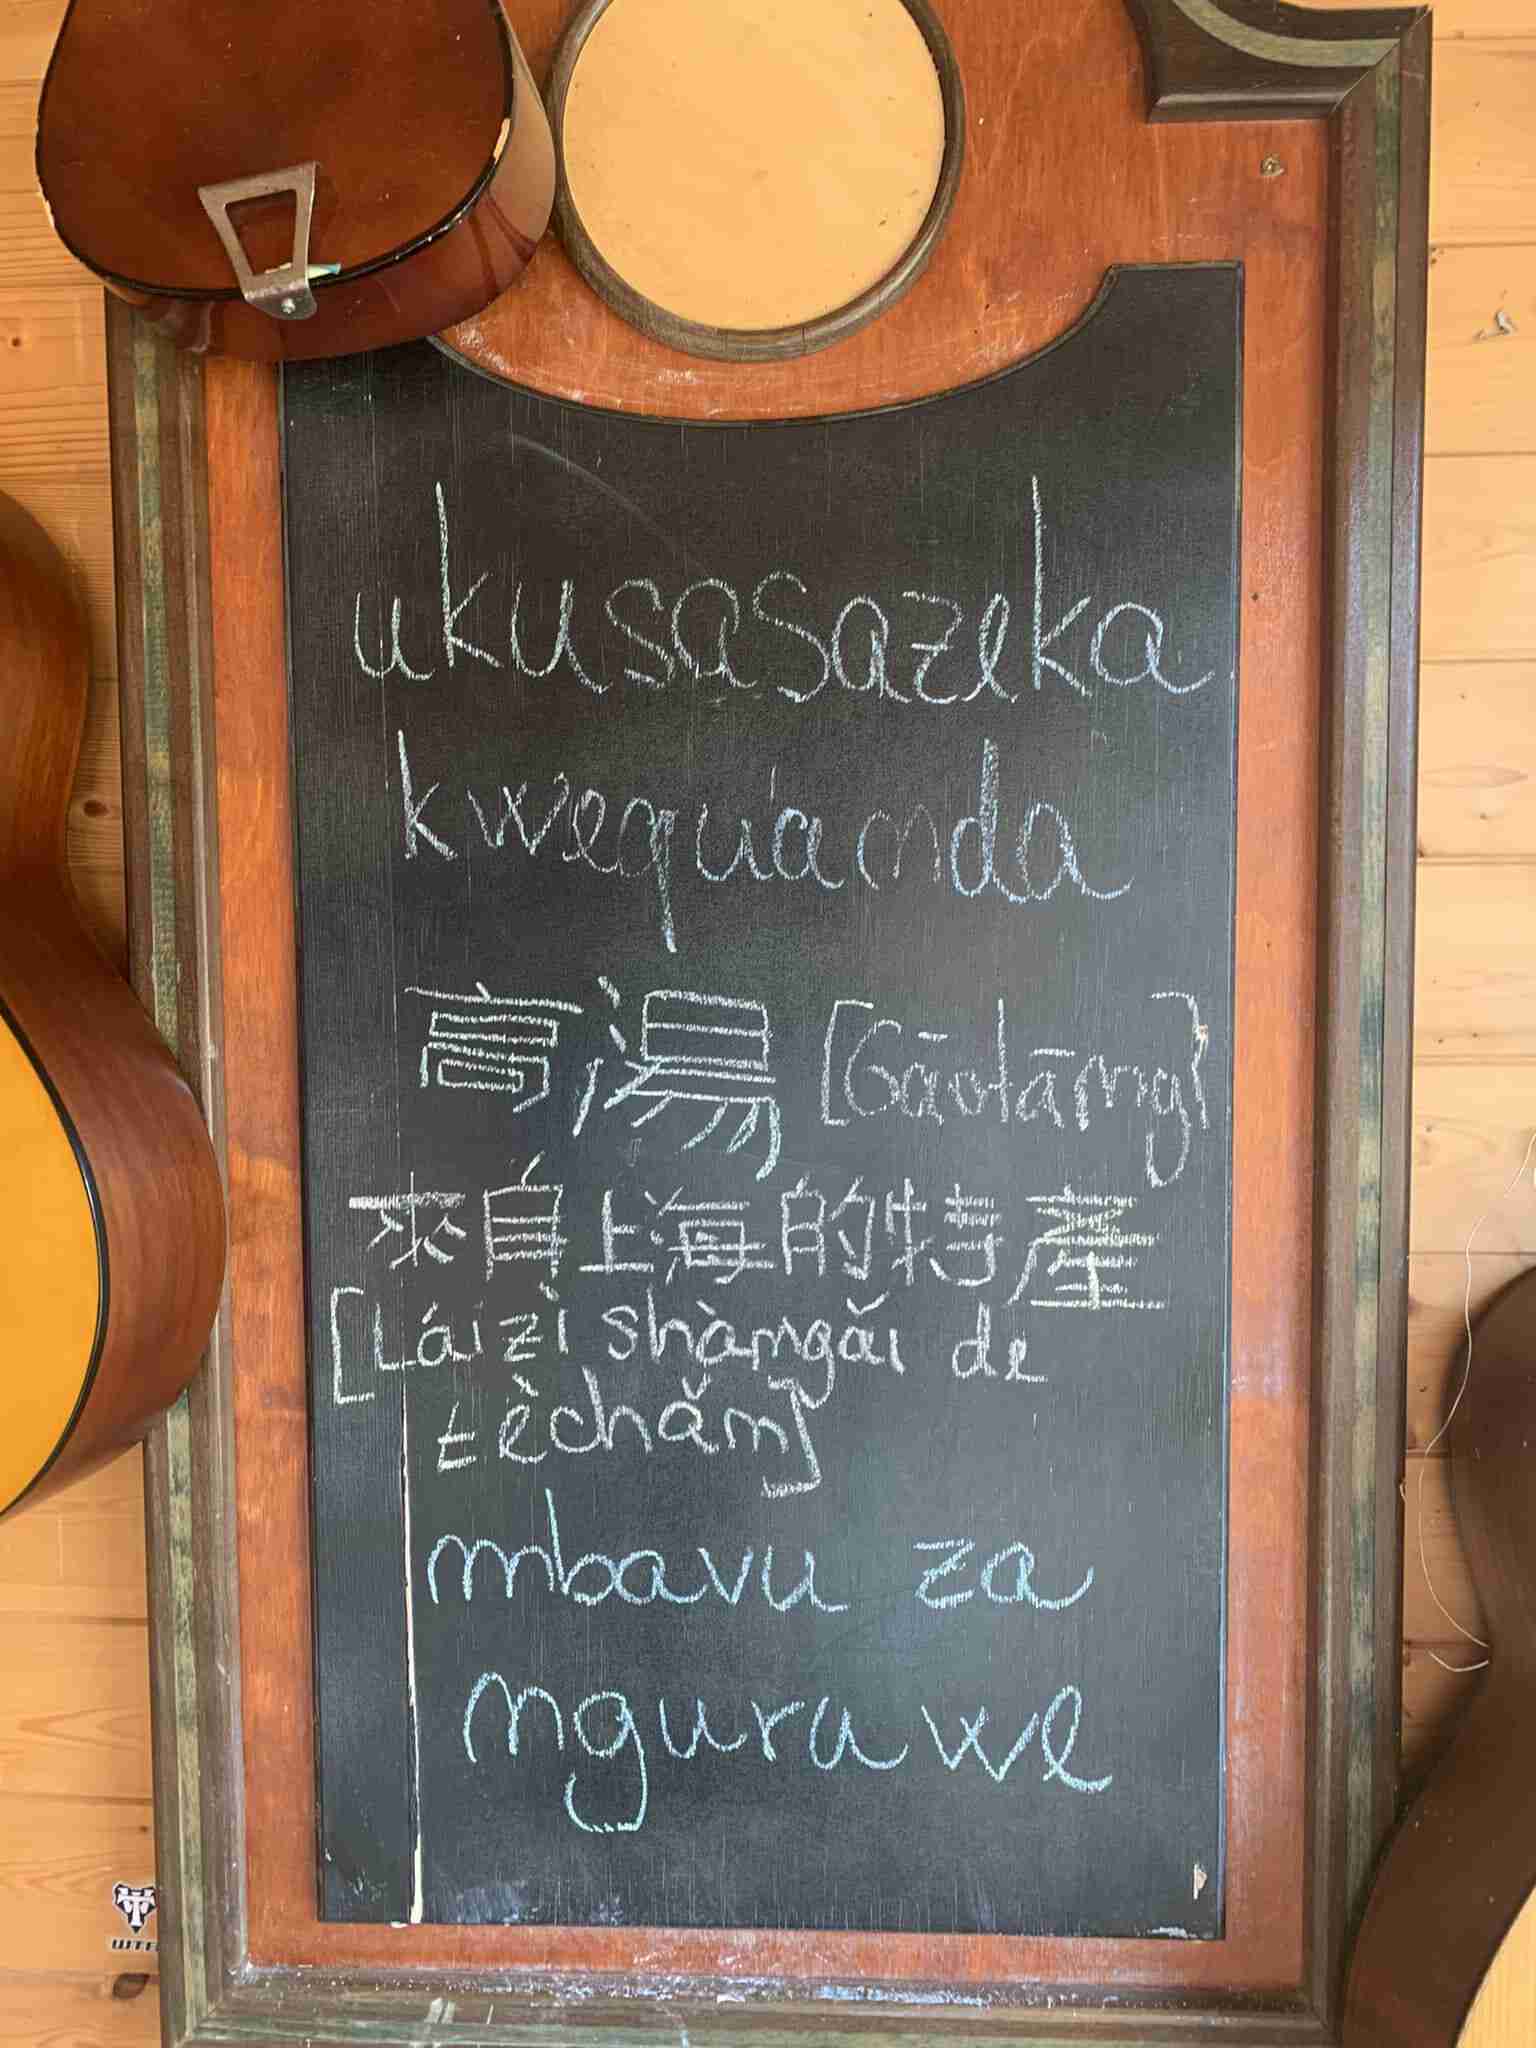 ukusasazeka
kwequanda
高湯 [Gāotāng]
來自上海的特產
[Lái zì shàngǎi de
tèchǎn]
mbavu za
nguruwe
WTF